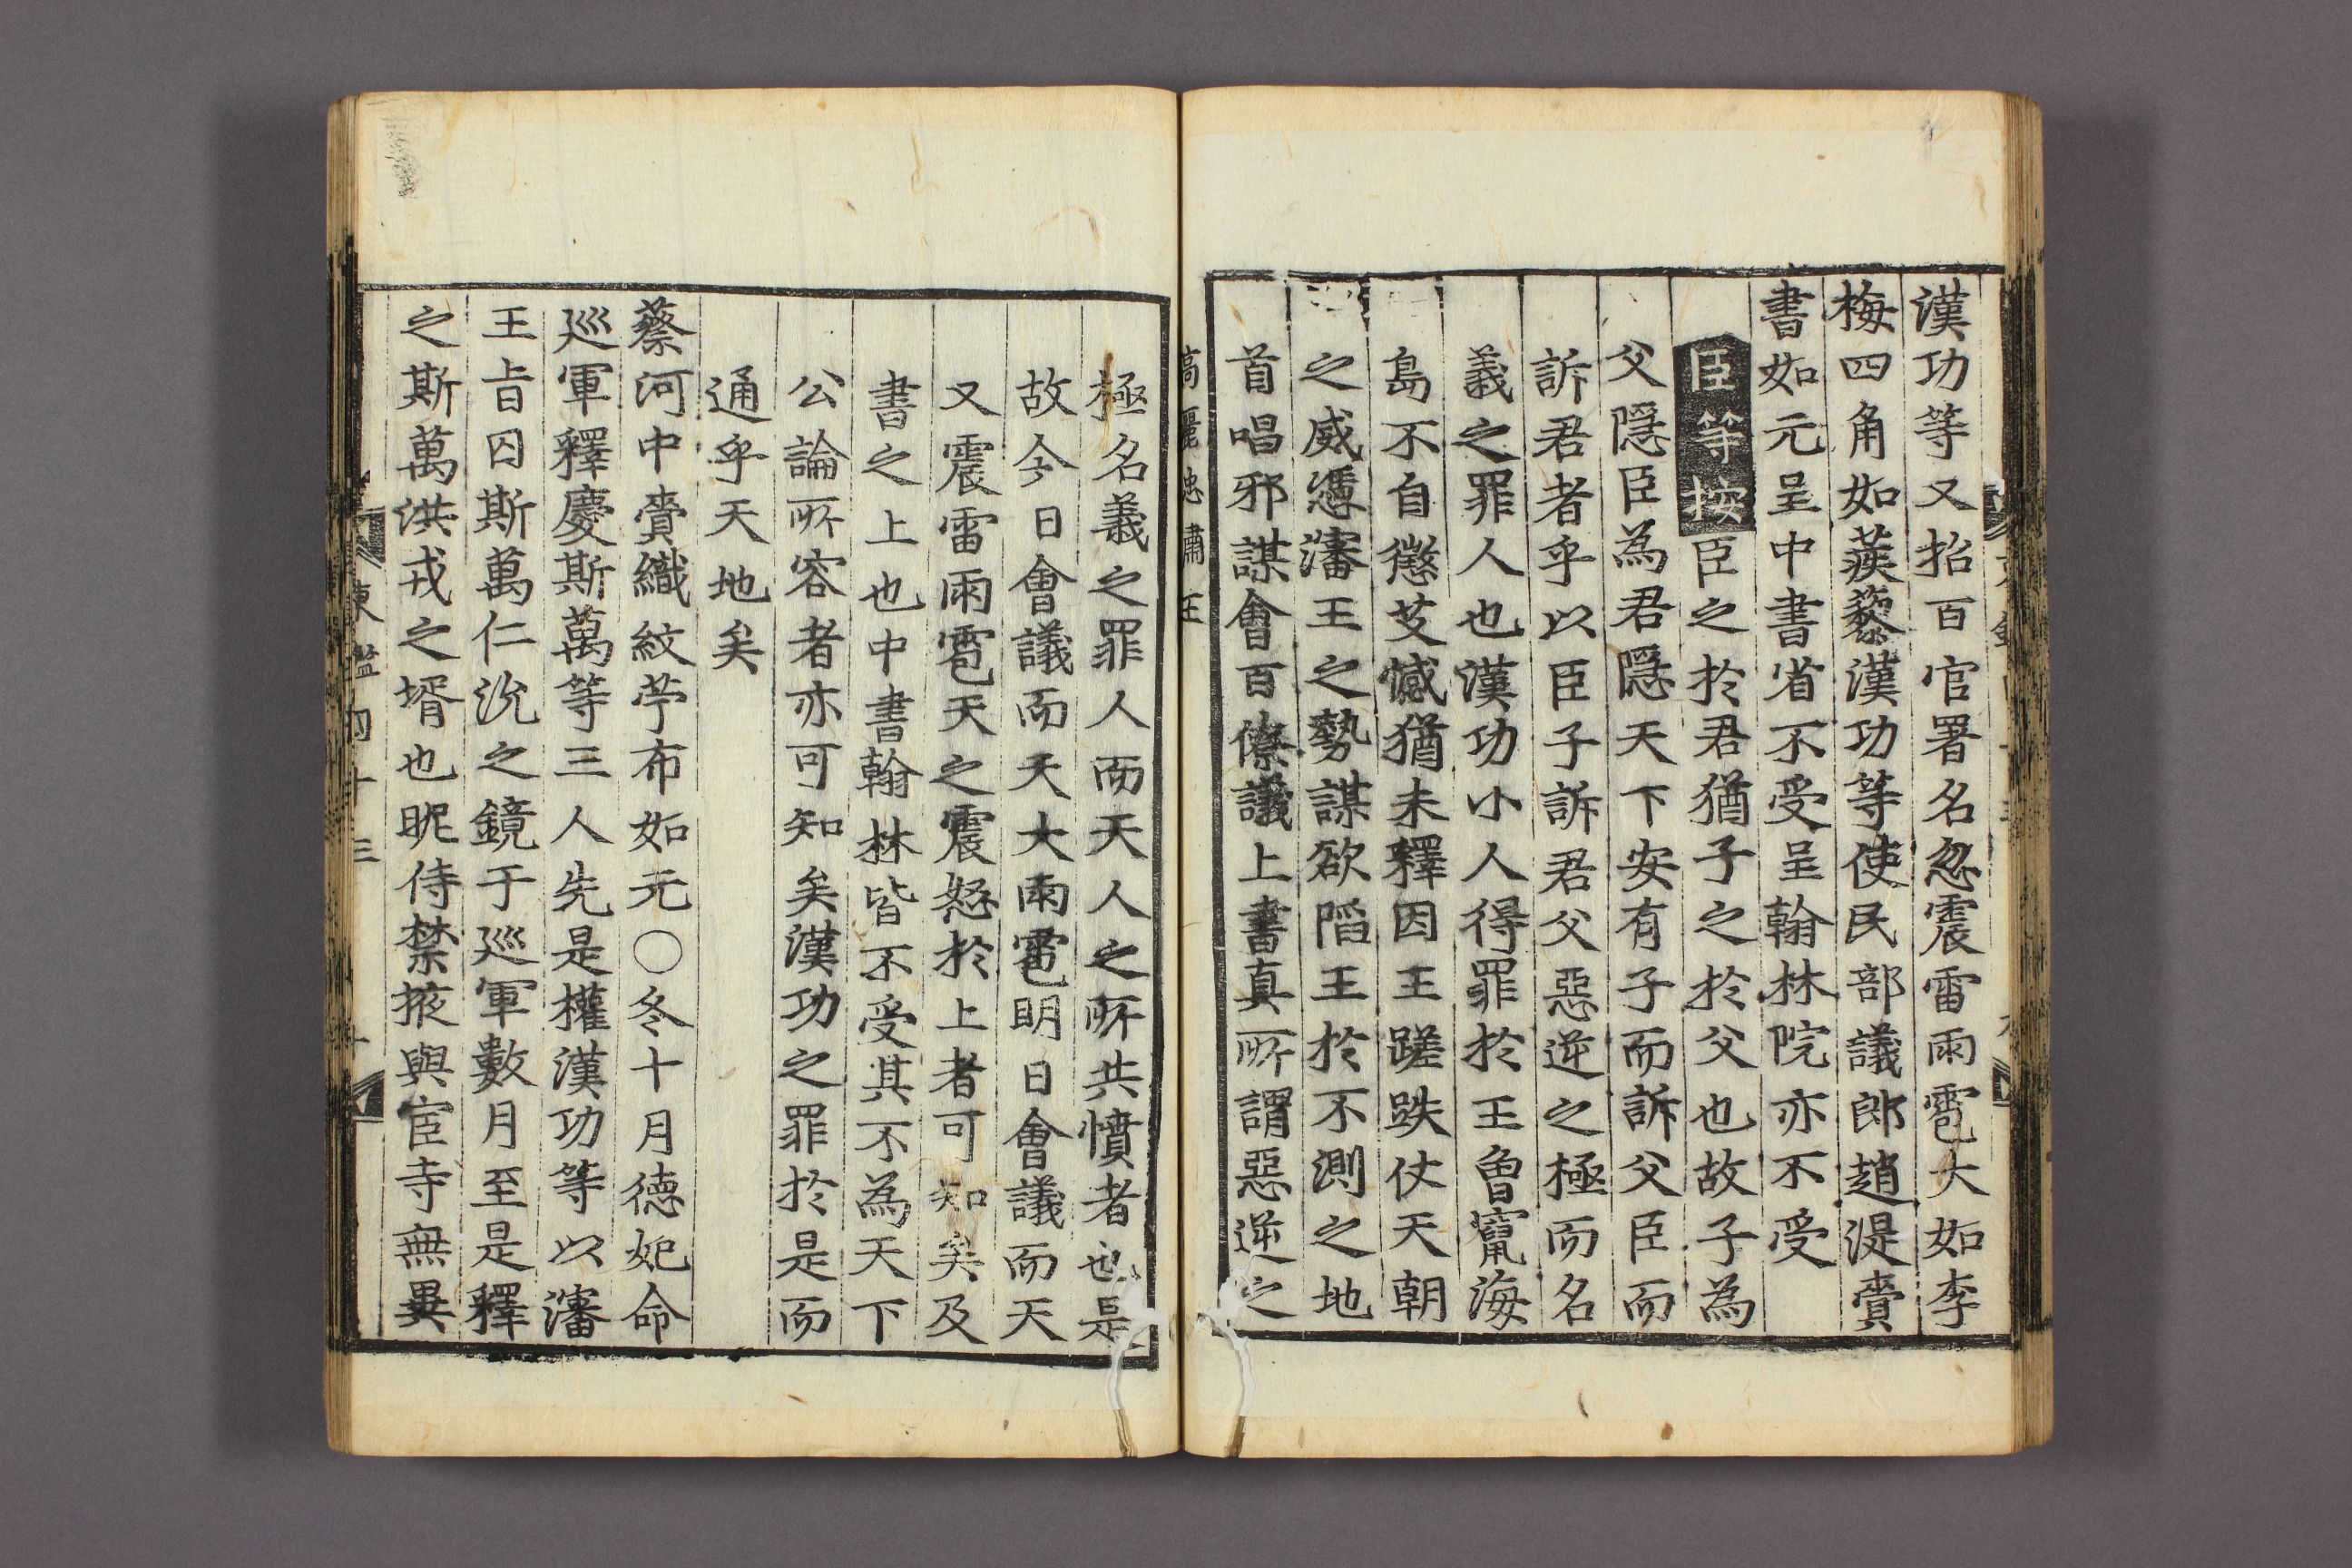 漢功等又招百官署名忽震雷雨雹大如李
梅四角如蒺藜漢功等使民部議郎趙湜賫
書如元呈中書省不受呈翰林院亦不受
臣等按臣之於君猶子之於父也故子為
父隱臣為君隱天下安有子而訴父臣而
訴君者乎以臣子訴君父惡逆之極而名
義之罪人也漢功小人得罪於王曾竄海
島不自懲艾憾猶未釋因王蹉跌仗天朝
之威憑瀋王之勢謀欲陷王於不測之地
首唱邪謀會百僚議上書真所謂惡逆之
高麗忠肅王
極名義之罪人而天人之所共憤者也是
故今日會議而天大雨雹明日會議而天
又震雷雨雹天之震怒於上者可知矣及
書之上也中書翰林皆不受其不為天下
公論所容者亦可知矣漢功之罪於是而
通乎天地矣
蔡河中賫織紋苧布如元○冬十月德妃命
巡軍釋慶斯萬等三人先是權漢功等以瀋
王旨囚斯萬仁沇之鏡于巡軍數月至是釋
之斯萬洪戎之壻也昵侍禁掖與宦寺無異
東鑑四十三